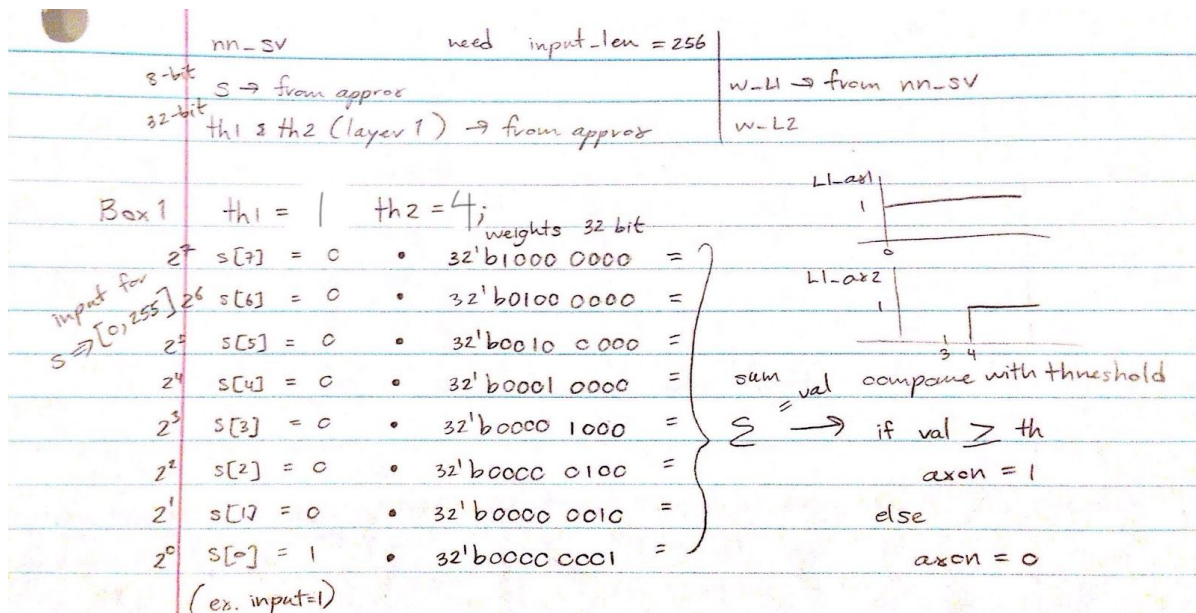 nn_sv need input_len = 256
8-bit s → from approx
32-bit th1 & th2 (layer 1) → from approx
w_L1 → from nn_sv
w_L2
Box 1 th1 = 1 th2 = 4;
weights 32 bit
input for s ⇒ [0, 255]
2^7 s[7] = 0 • 32'b1000 0000 =
2^6 s[6] = 0 • 32'b0100 0000 =
2^5 s[5] = 0 • 32'b0010 0000 =
2^4 s[4] = 0 • 32'b0001 0000 =
2^3 s[3] = 0 • 32'b0000 1000 =
2^2 s[2] = 0 • 32'b0000 0100 =
2^1 s[1] = 0 • 32'b0000 0010 =
2^0 s[0] = 1 • 32'b0000 0001 =
(ex. input=1)
L1_ax1
1
0
L1_ax2
1
3 4
sum = val compare with threshold
Σ → if val ≥ th
axon = 1
else
axon = 0